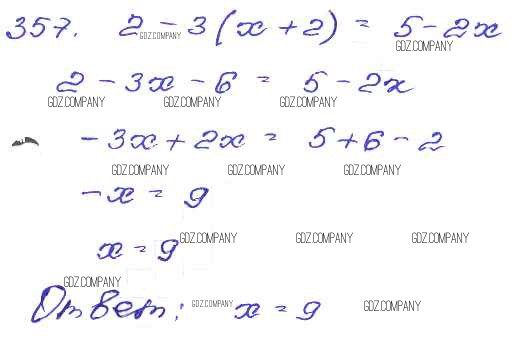 357. 2 - 3(x + 2) = 5 - 2x
GDZ.COMPANY GDZ.COMPANY
2 - 3x - 6 = 5 - 2x
GDZ.COMPANY GDZ.COMPANY GDZ.COMPANY
- 3x + 2x = 5 + 6 - 2
GDZ.COMPANY GDZ.COMPANY GDZ.COMPANY
- x = 9
x = 9
GDZ.COMPANY GDZ.COMPANY GDZ.COMPANY
GDZ.COMPANY
Ответ: x = 9
GDZ.COMPANY GDZ.COMPANY